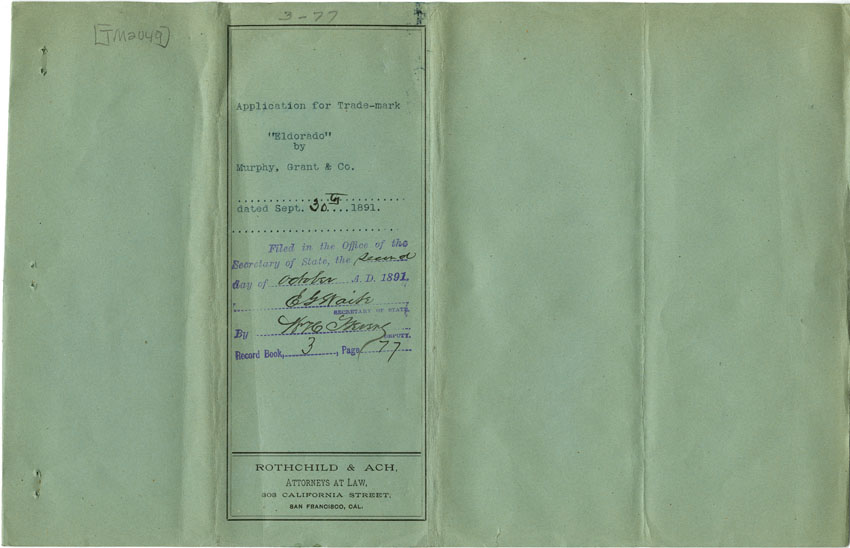 3-77
[TM2049]
Application for Trade-mark
"Eldorado"
by
Murphy, Grant & Co.
dated Sept. 30th 1891.
Filed in the Office of the
Secretary of State, the second
day of October A.D. 1891.
E G Waite
SECRETARY OF STATE.
By W H C
DEPUTY.
Record Book, 3, Page 77
ROTHCHILD & ACH,
ATTORNEYS AT LAW,
303 CALIFORNIA STREET,
SAN FRANCISCO, CAL.